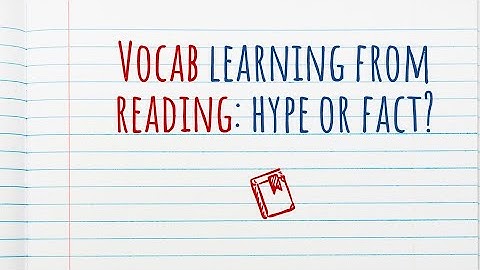 Vocab learning from
reading: hype or fact?